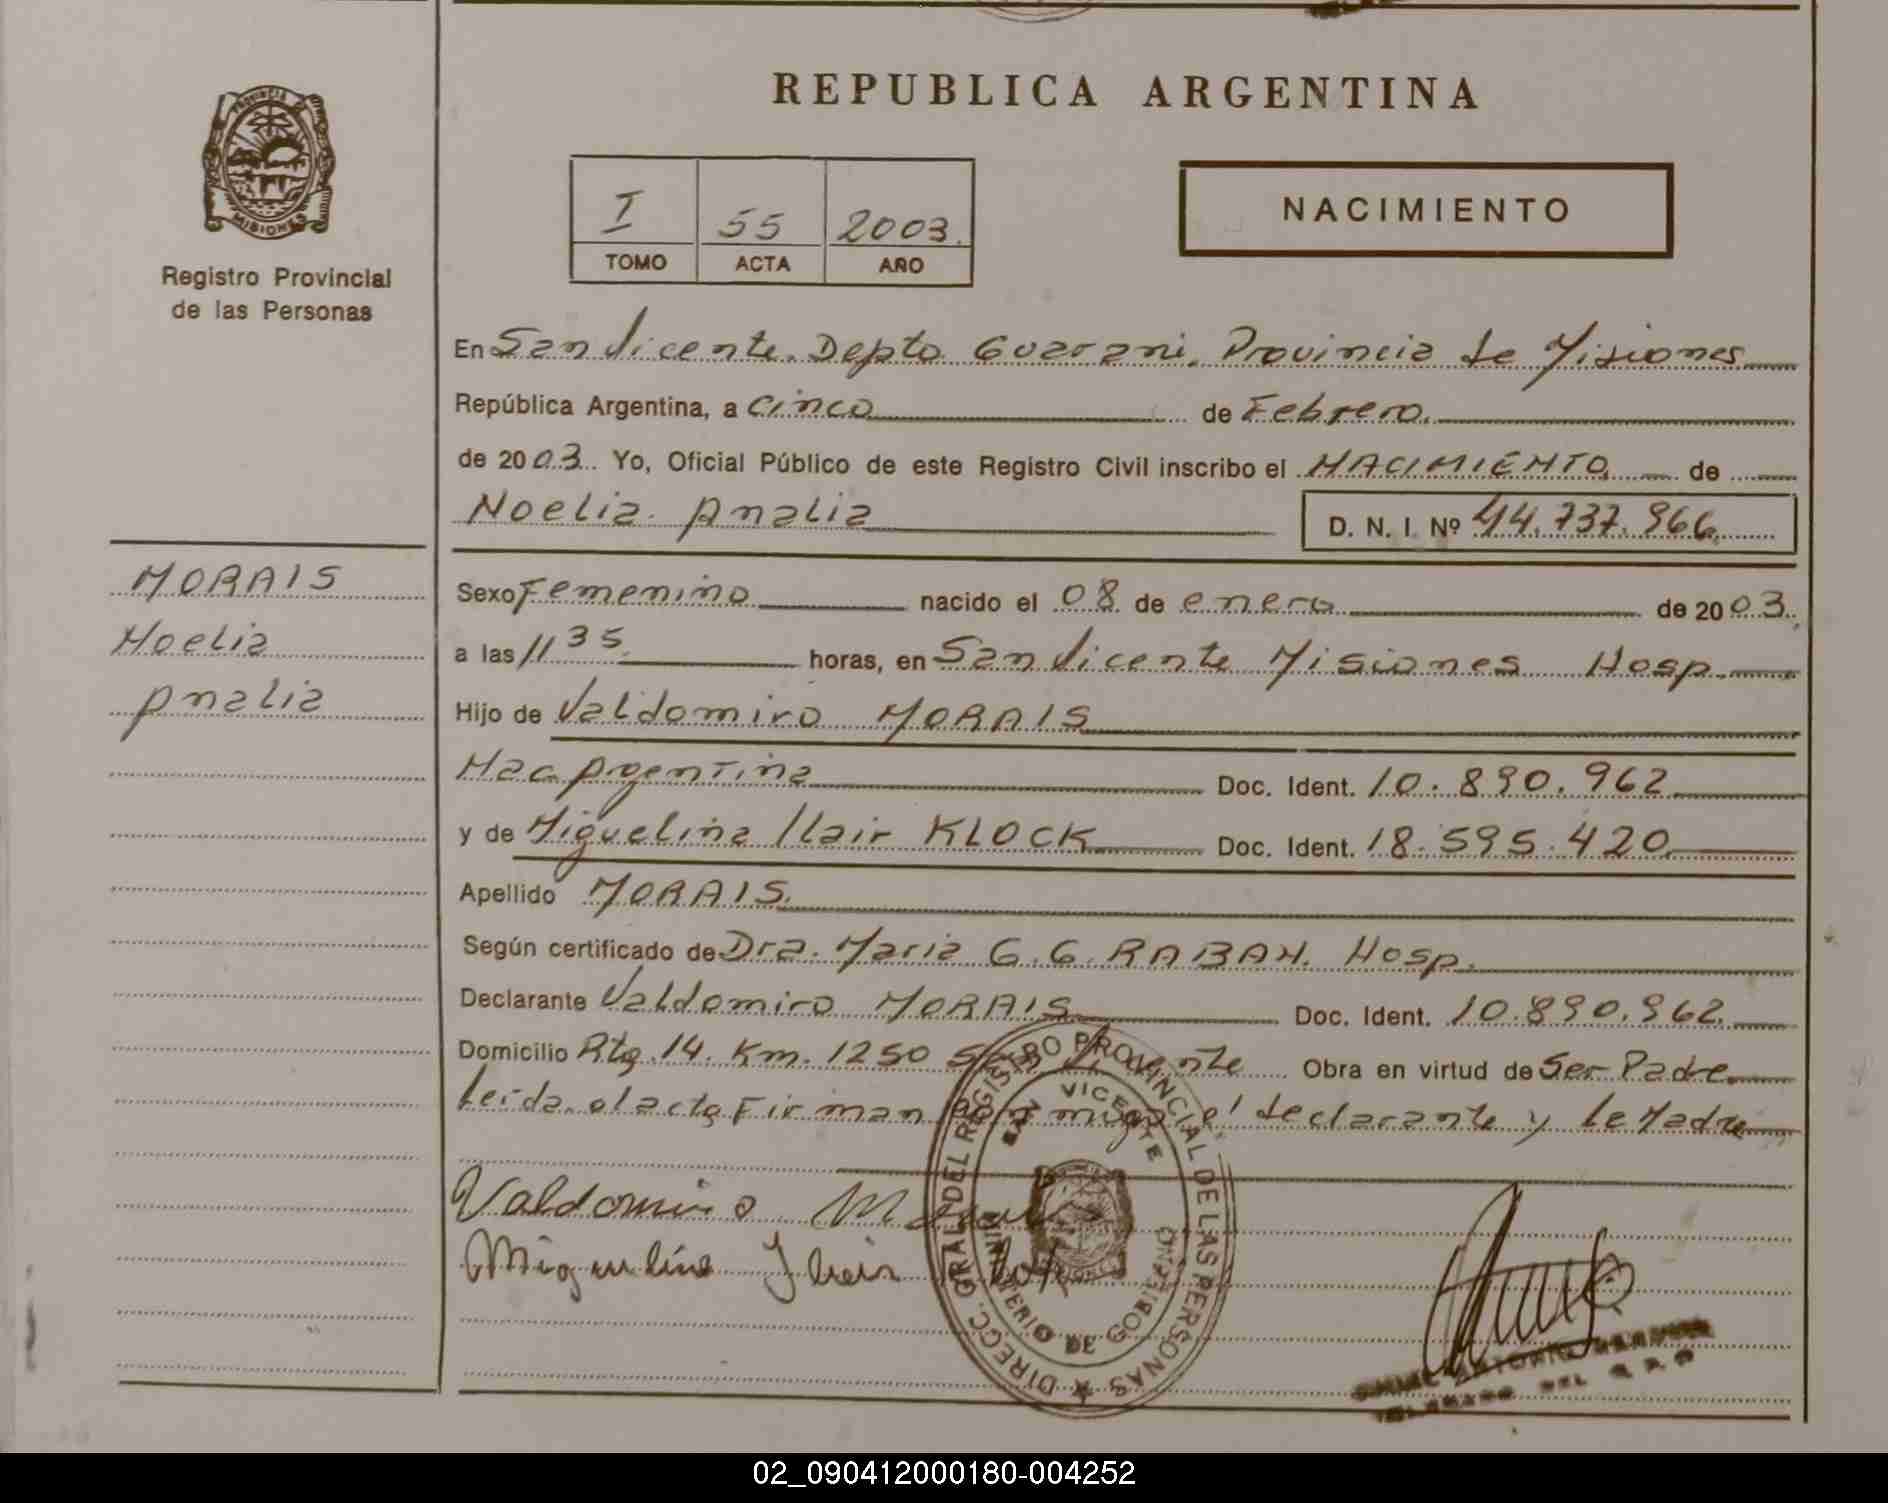 REPUBLICA ARGENTINA
PROVINCIA DE
MISIONES
Registro Provincial
de las Personas
I 55 2003.
TOMO ACTA AÑO
NACIMIENTO
En San Vicente. Depto Guarani. Provincia de Misiones
República Argentina, a cinco de Febrero.
de 2003. Yo, Oficial Público de este Registro Civil inscribo el NACIMIENTO de
Noelia Analia D. N. I. Nº 44.737.966
MORAIS
Noelia
Analia
Sexo Femenino nacido el 08 de enero de 2003.
a las 11 35 horas, en San Vicente Misiones Hosp.
Hijo de Valdomiro MORAIS
Nac. Argentina Doc. Ident. 10.890.962
y de Miguelina Ilair KLOCK Doc. Ident. 18.595.420
Apellido MORAIS.
Según certificado de Dra. Maria G. G. RABAN. Hosp.
Declarante Valdomiro MORAIS Doc. Ident. 10.890.962
Domicilio Rta. 14. Km. 1250 San Vicente Obra en virtud de Ser Padre
Leida el acta Firman conmigo el declarante y la Madre
Valdomiro
Miguelina
DIRECC. GRAL DEL REGISTRO PROVINCIAL DE LAS PERSONAS
SAN VICENTE
MINISTERIO DE GOBIERNO
02_090412000180-004252